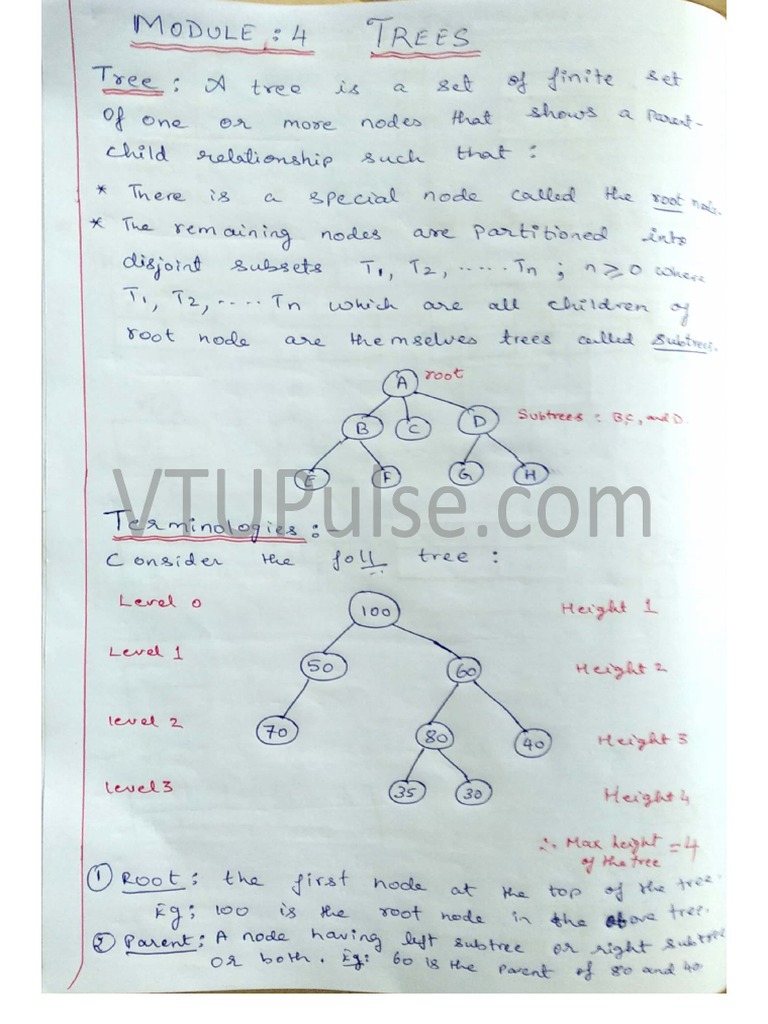 MODULE : 4 TREES
Tree : A tree is a set of finite set
of one or more nodes that shows a parent-
child relationship such that :
* There is a special node called the root node.
* The remaining nodes are partitioned into
disjoint subsets T1, T2, ..... Tn ; n ≥ 0 where
T1, T2, .... Tn which are all children of
root node are themselves trees called Subtrees.
A root
B C D Subtrees : B, C, and D.
E F G H
VTUPulse.com
Terminologies :-
Consider the foll tree :
Level 0 100 Height 1
Level 1 50 60 Height 2
level 2 70 80 40 Height 3
Level 3 35 30 Height 4
∴ Max height = 4
of the tree
① Root : the first node at the top of the tree.
Eg; 100 is the root node in the above tree.
② Parent : A node having left subtree or right subtree
or both. Eg: 60 is the parent of 80 and 40